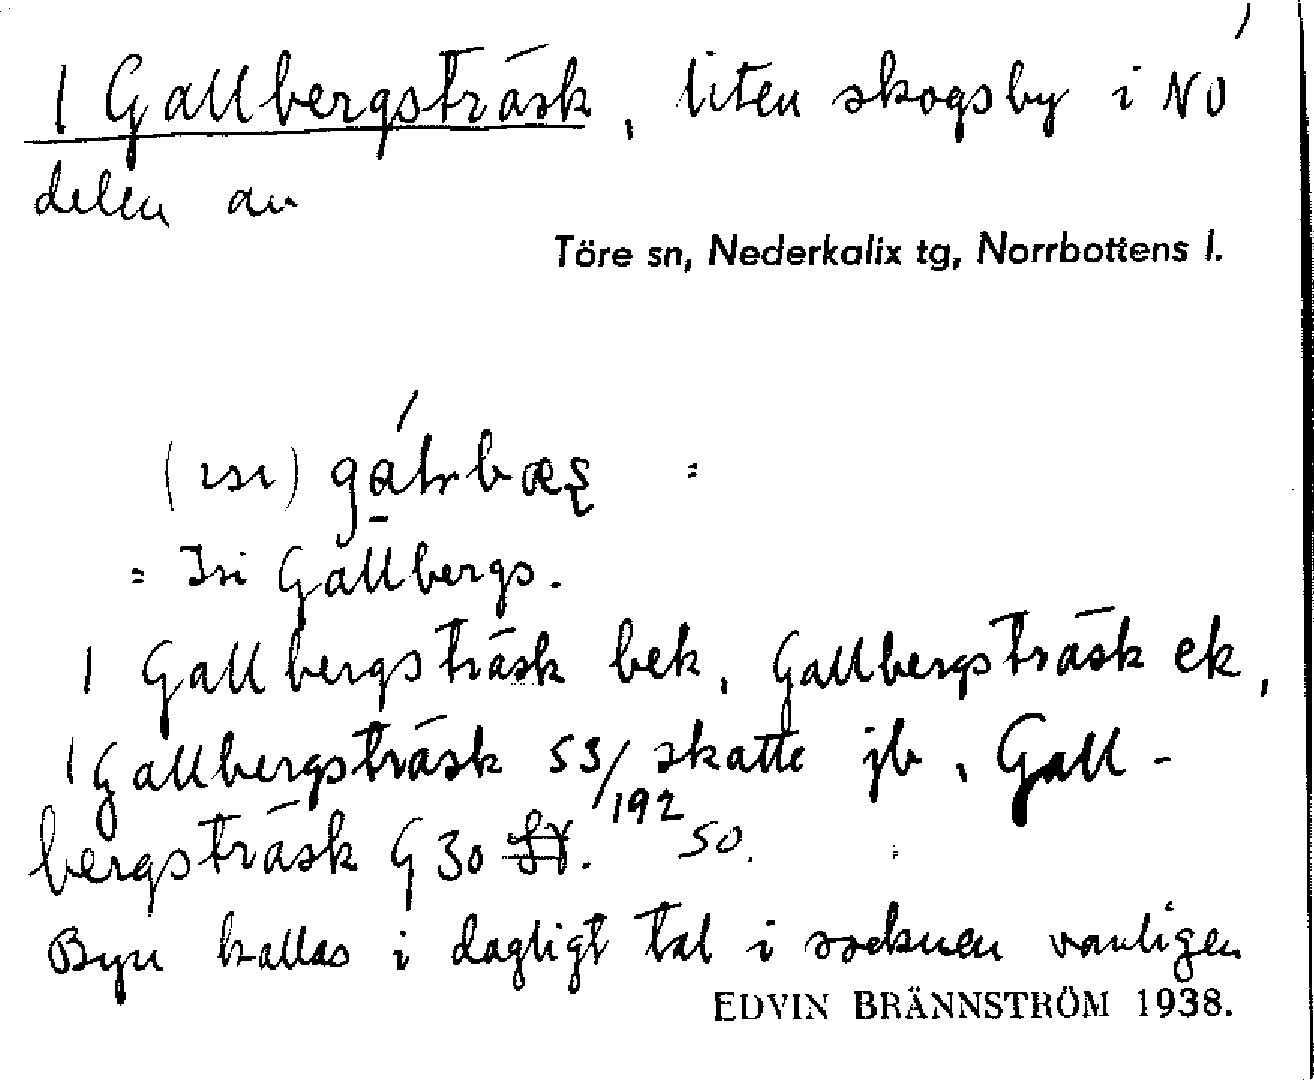 1 Gallbergsträsk, liten skogsby i NO
delen av
Töre sn, Nederkalix tg, Norrbottens l.
=
= Isi Gallbergs.
1 Gallbergsträsk bek, Gallbergsträsk ek,
1 Gallbergsträsk 53/192 skatte jb, Gall-
bergsträsk G 30 SO.
Byn kallas i dagligt tal i socknen vanligen
EDVIN BRÄNNSTRÖM 1938.